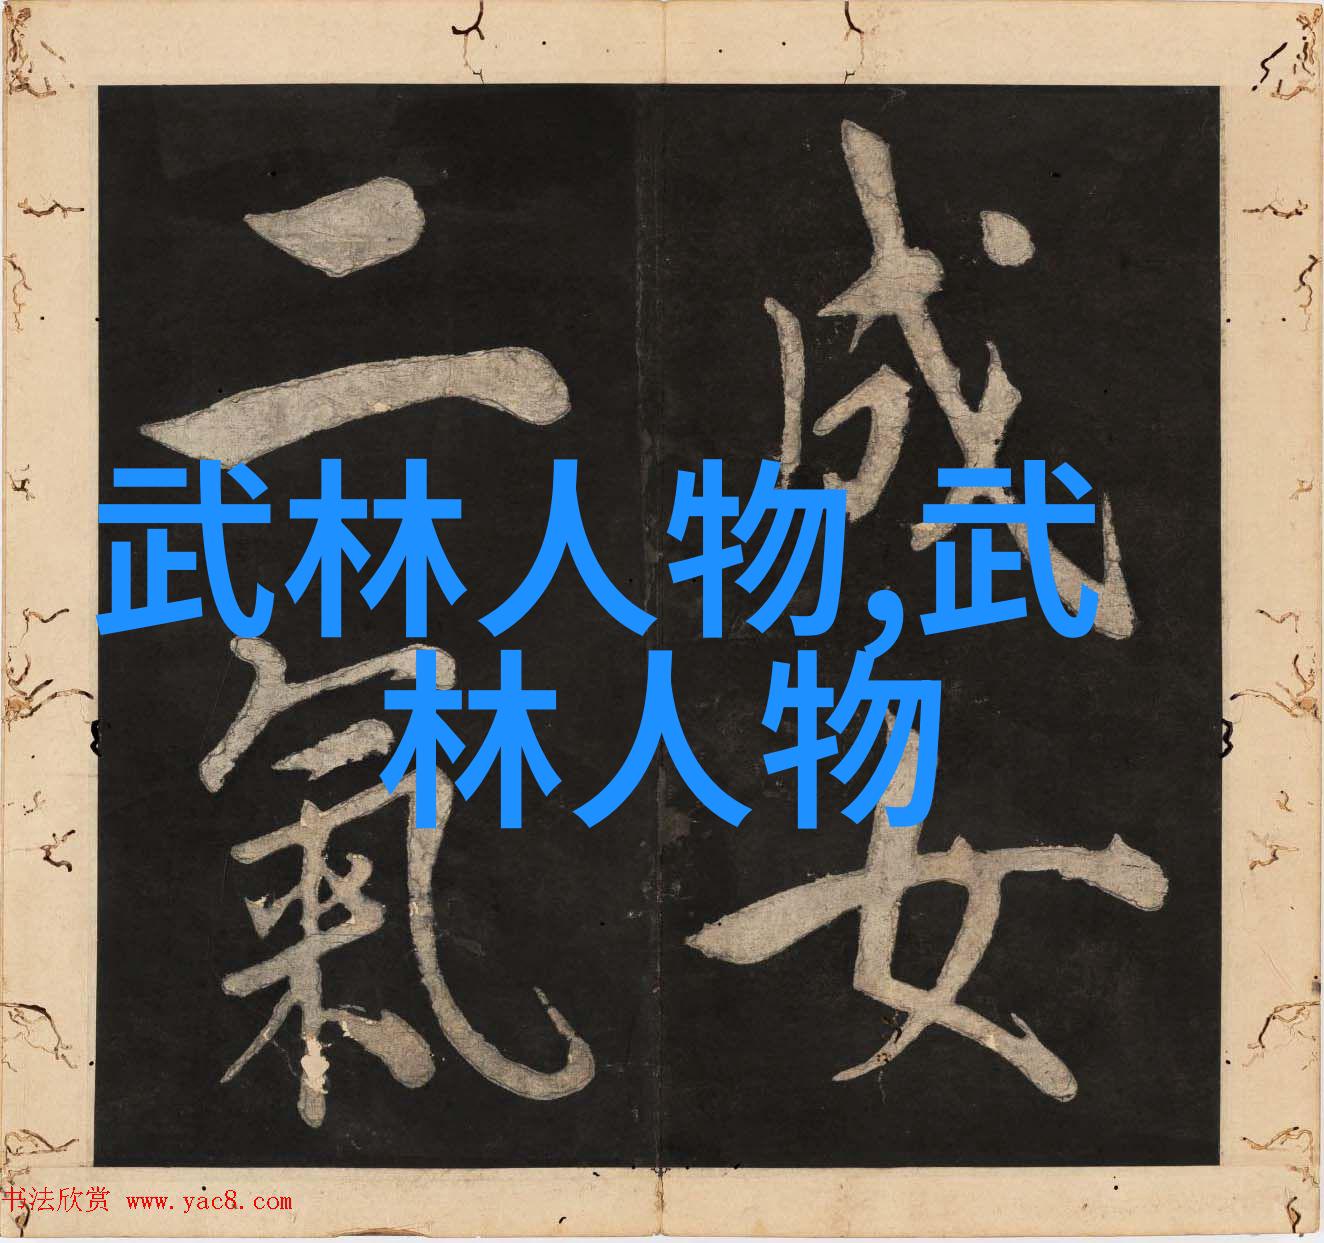 成女
二氣
武林人物,武
林人物
书法欣赏 www.yac8.com